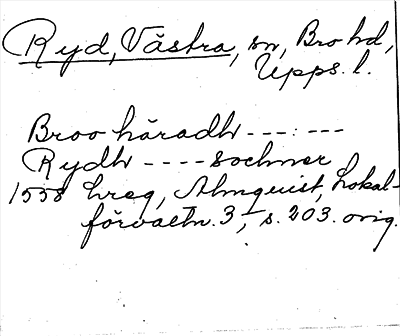 Ryd, Västra, sn, Bro hd,
Upps. l.
Broo häradh ---:---
Rydh ---- sochner
1538 hreg, Almquist, Lokal-
förvaltn. 3, s. 203. orig.